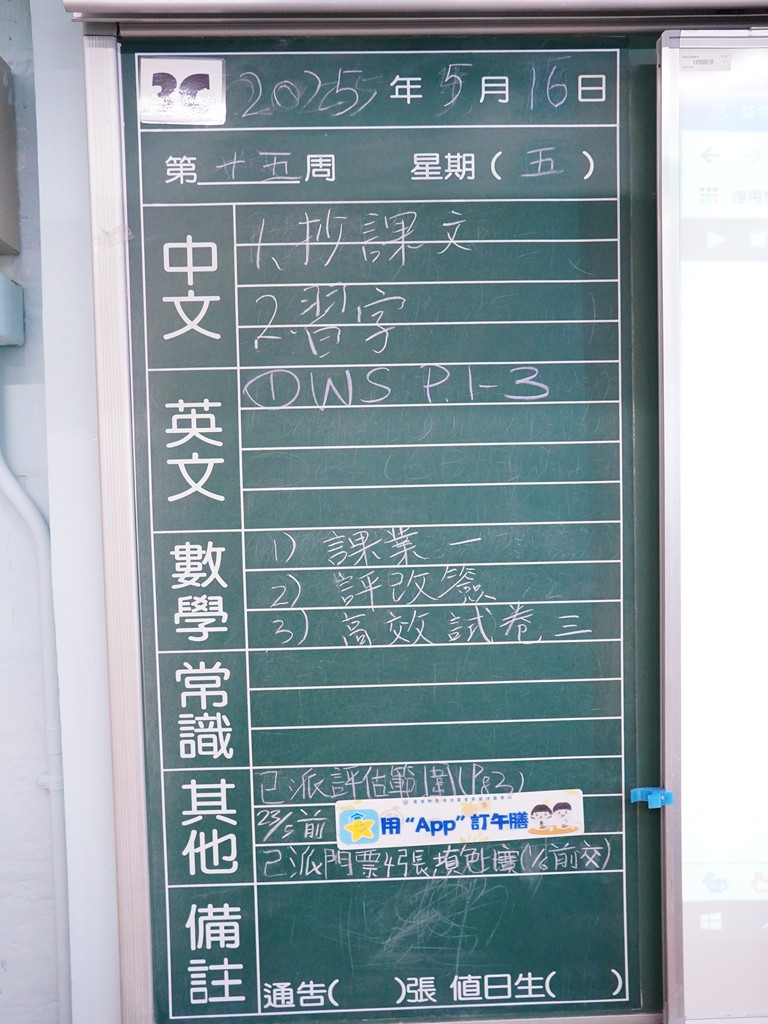 3C
2025年5月16日
第廿五周 星期(五)
中文
1、抄課文
2.習字
英文
①WS P.1-3
數學
1) 課業一
2) 評改簽
3) 高效試卷三
常識
其他
已派評估範圍(P.83)
23/5前
用“App”訂午膳
已派門票4張填
(1/6前交)
備註
通告( )張 值日生( )